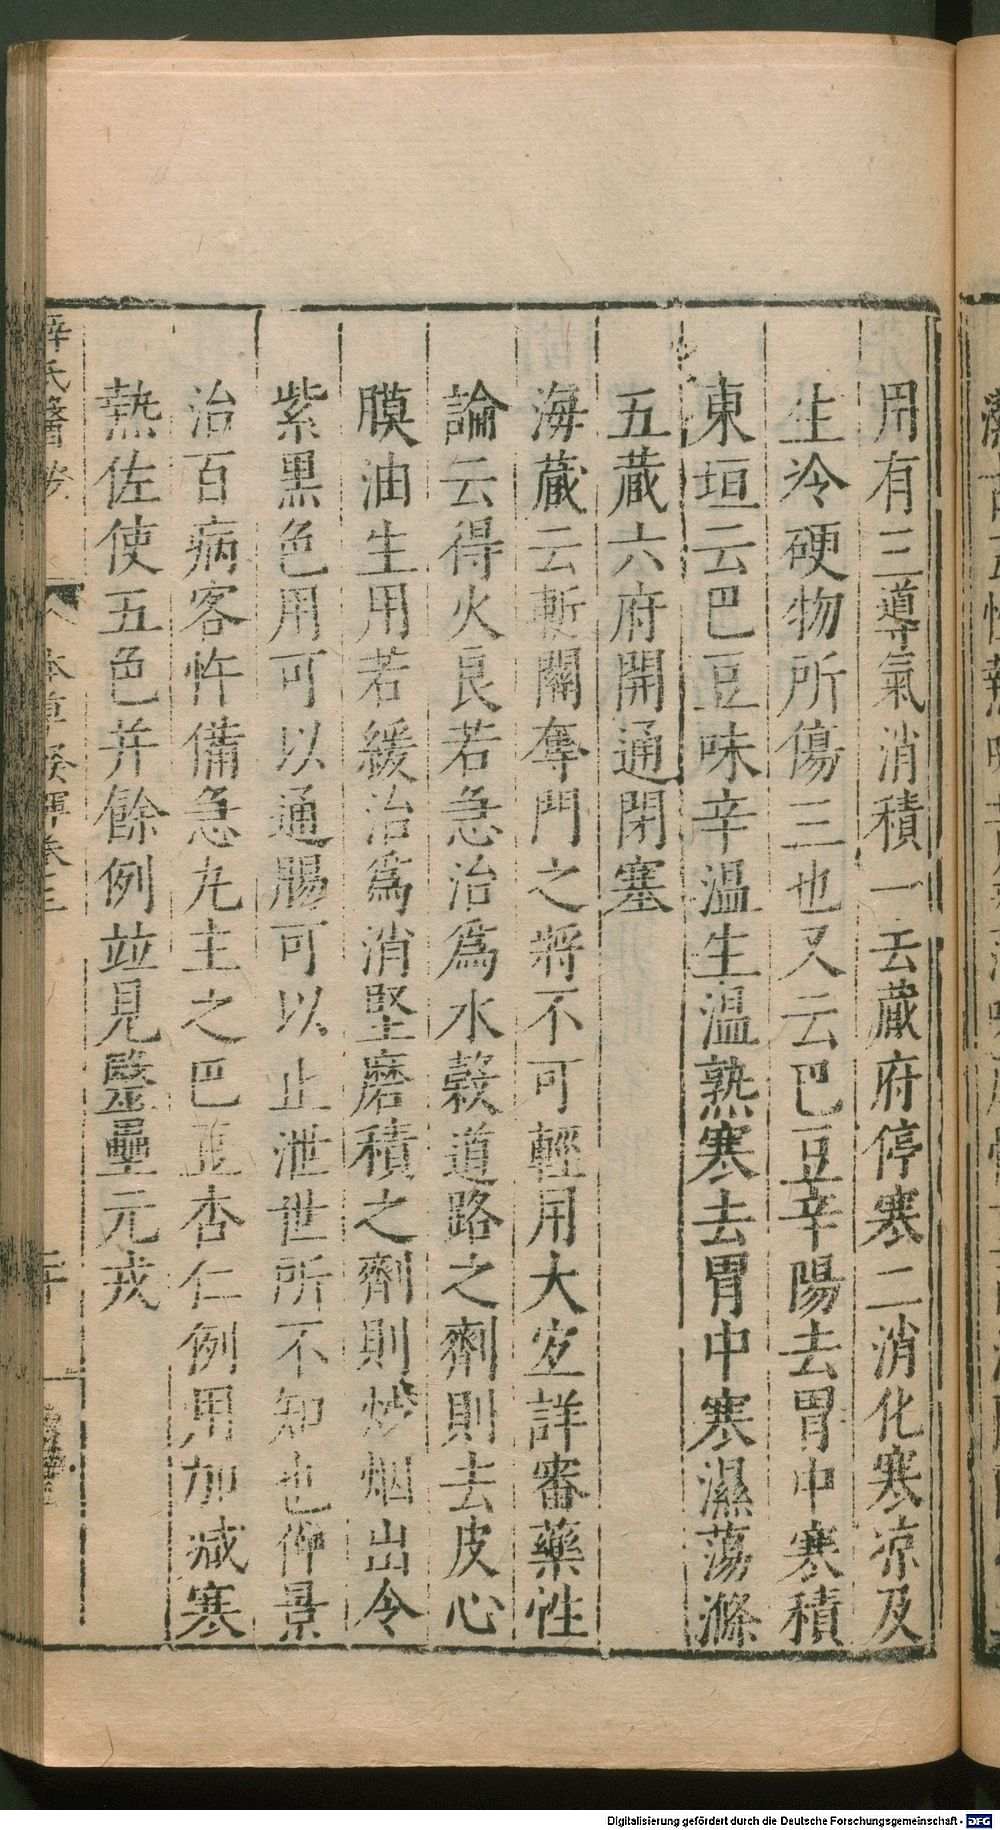 用有三導氣消積一云蔵府停寒二消化寒凉及
生冷硬物所傷三也又云巴豆辛陽去胃中寒積
東垣云巴豆味辛温生温熟寒去胃中寒濕蕩滌
五蔵六府開通閉塞
海蔵云斬關奪門之將不可輕用大宜詳審藥性
論云得火良若急治爲水穀道路之劑則去皮心
膜油生用若緩治爲消堅磨積之劑則炒烟出令
紫黑色用可以通腸可以止泄世所不知也仲景
治百病客忤備急丸主之巴豆杏仁例用加减寒
熱佐使五色并餘例竝見毉壘元戎
薛氏醫按 本草發揮卷三
Digitalisierung gefördert durch die Deutsche Forschungsgemeinschaft - DFG